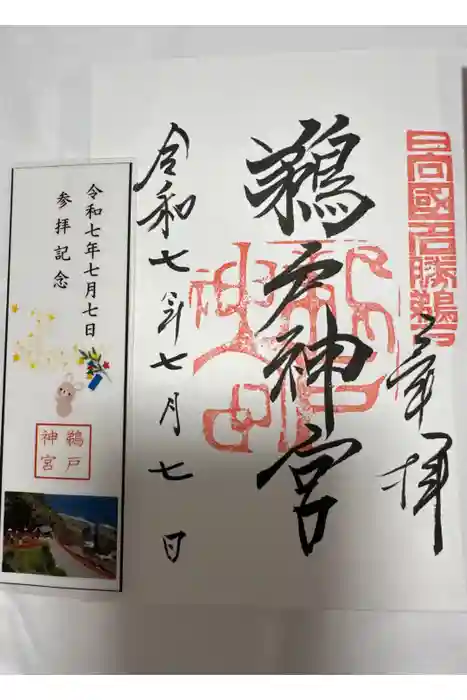 日向國名勝鵜戸
奉拝
鵜戸神宮
令和七年七月七日
令和七年七月七日
参拝記念
鵜戸
神宮